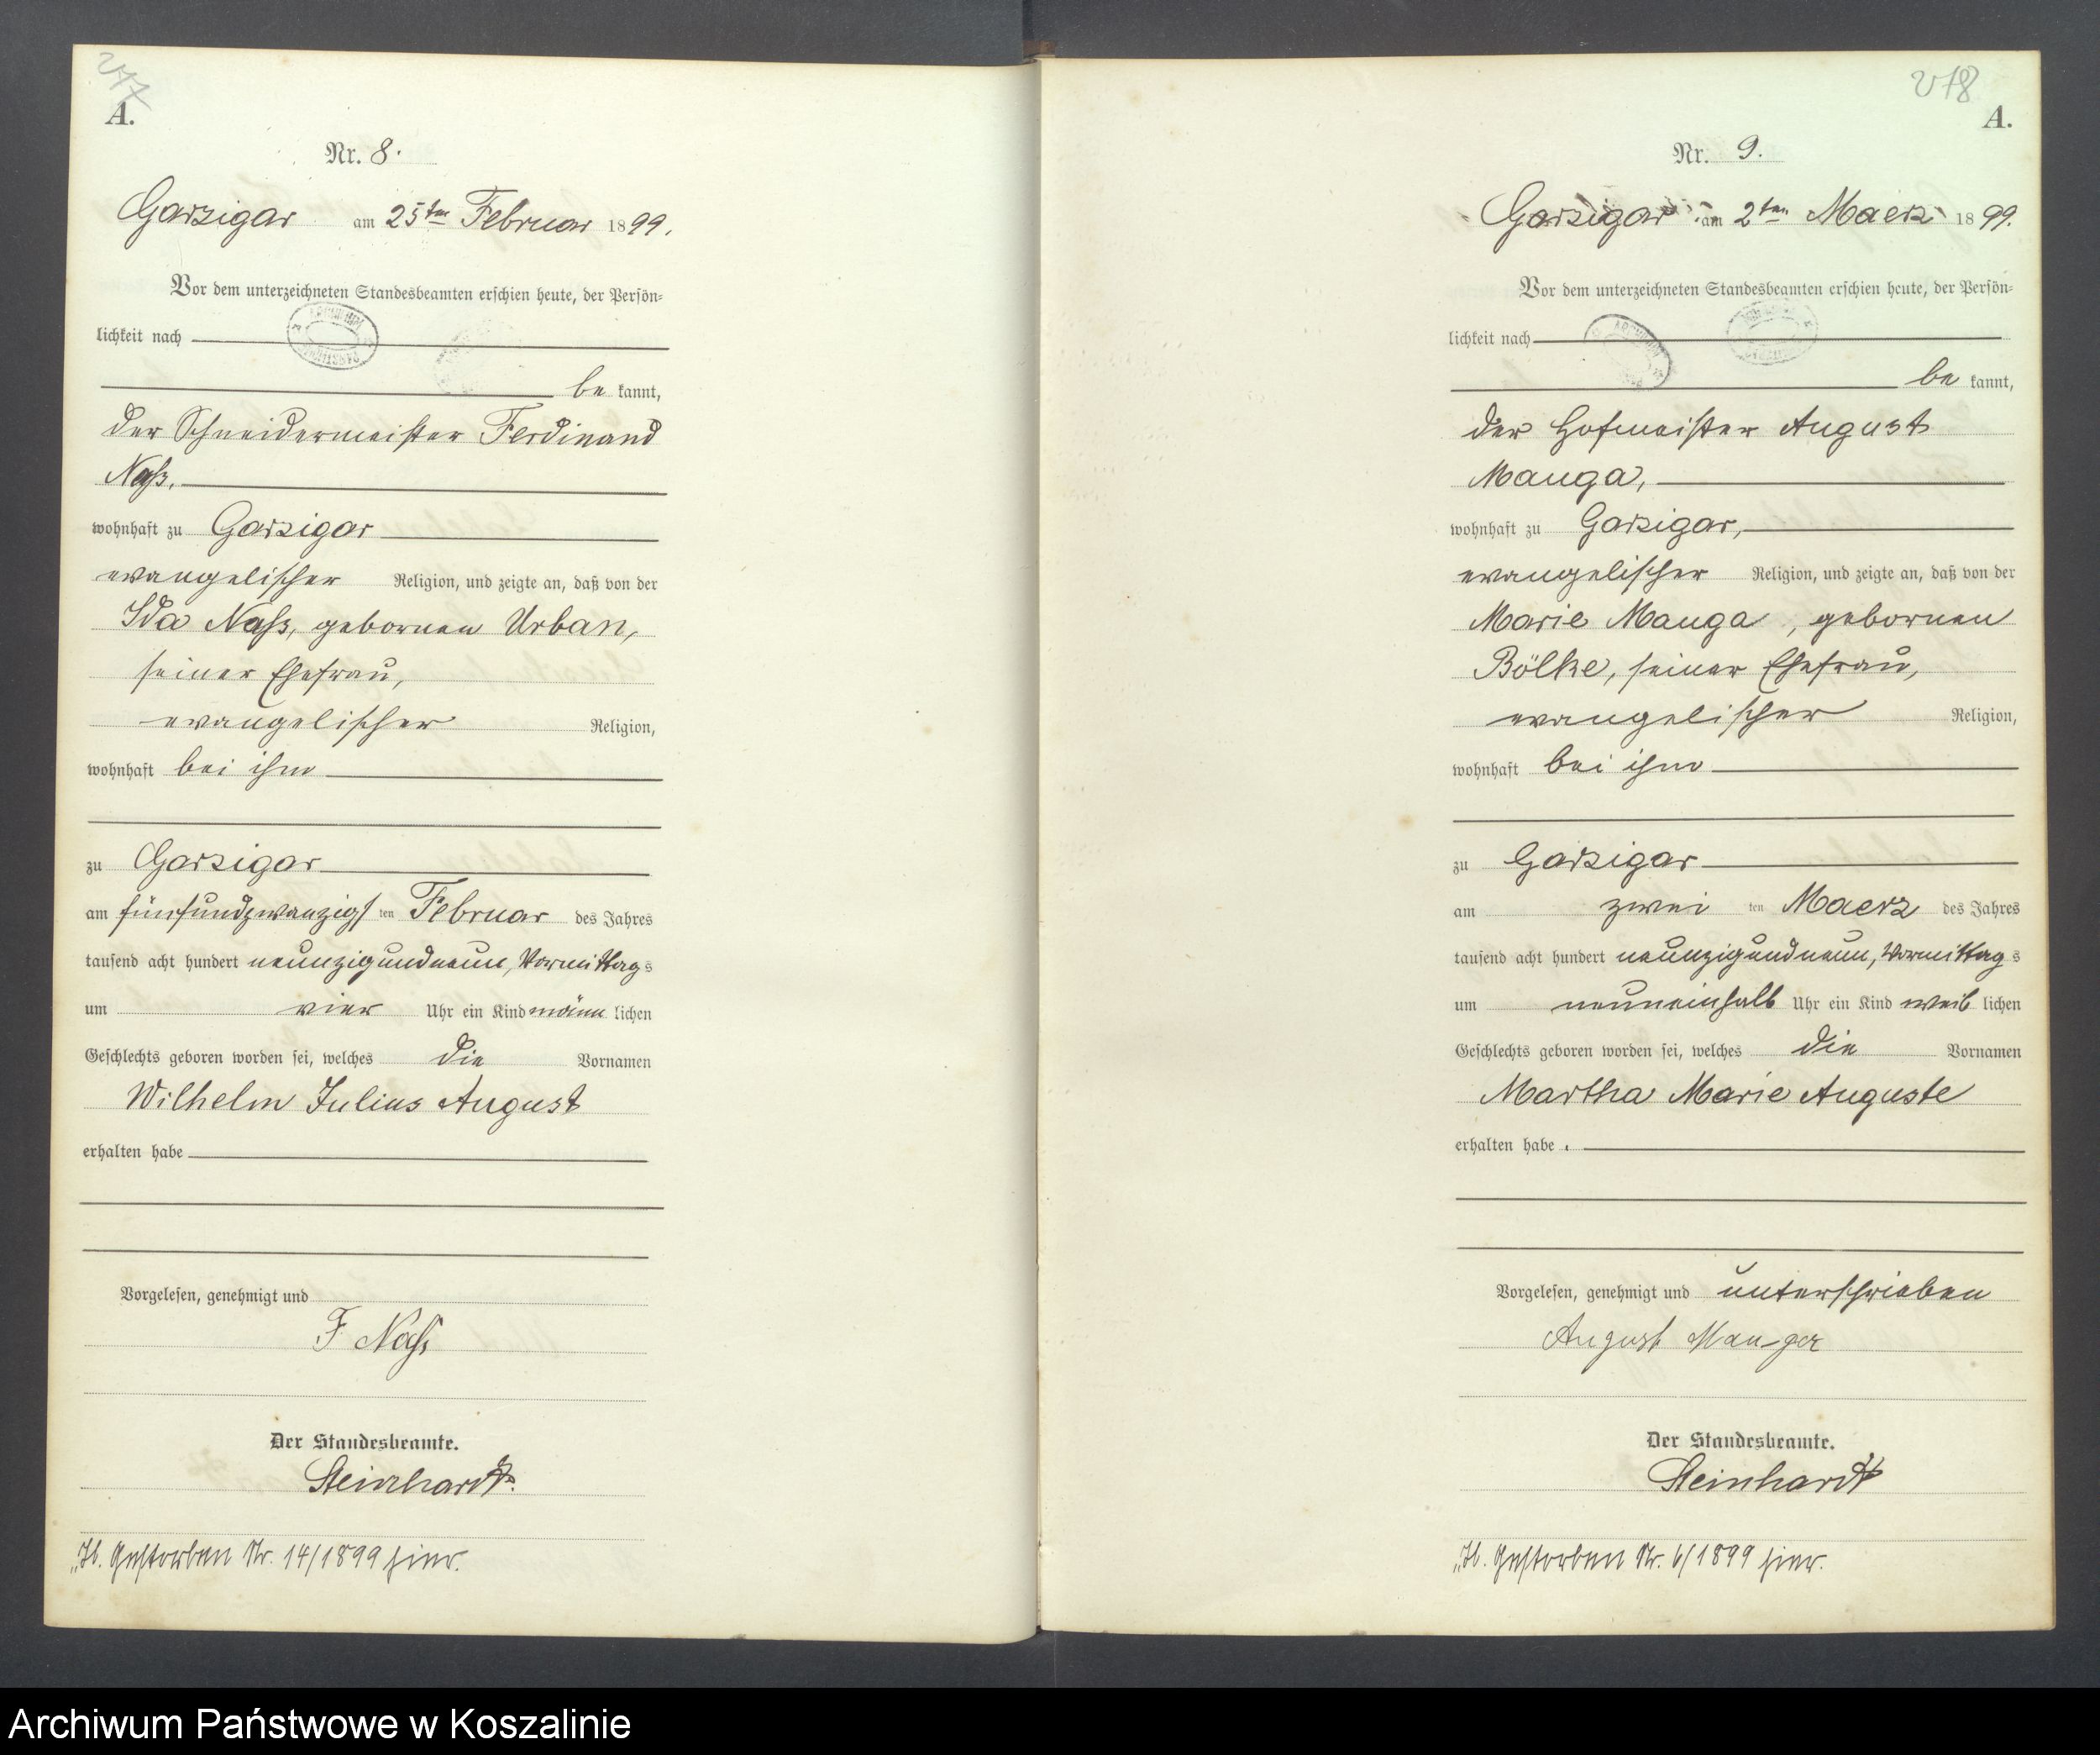 277
A.
Nr. 8.
Garzigar am 25ten Februar 1899.
Vor dem unterzeichneten Standesbeamten erschien heute, der Persön-
lichkeit nach
be kannt,
der Schneidermeister Ferdinand
Naß,
wohnhaft zu Garzigar
evangelischer Religion, und zeigte an, daß von der
Ida Naß, gebornen Urban,
seiner Ehefrau,
evangelischer Religion,
wohnhaft bei ihm
zu Garzigar
am fünfundzwanzigs ten Februar des Jahres
tausend acht hundert neunzigundneun, Vormittag s
um vier Uhr ein Kind männ lichen
Geschlechts geboren worden sei, welches die Vornamen
Wilhelm Julius August
erhalten habe
Vorgelesen, genehmigt und
F Naß
Der Standesbeamte.
Steinhardt.
„H. Gestorben Nr. 14/1899 hier.
278
A.
Nr. 9.
Garzigar am 2ten Maerz 1899.
Vor dem unterzeichneten Standesbeamten erschien heute, der Persön-
lichkeit nach
be kannt,
der Hofmeister August
Manga,
wohnhaft zu Garzigar,
evangelischer Religion, und zeigte an, daß von der
Marie Manga, gebornen
Bölke, seiner Ehefrau,
evangelischer Religion,
wohnhaft bei ihm
zu Garzigar
am zwei ten Maerz des Jahres
tausend acht hundert neunzigundneun, Vormittag s
um neuneinhalb Uhr ein Kind weib lichen
Geschlechts geboren worden sei, welches die Vornamen
Martha Marie Auguste
erhalten habe.
Vorgelesen, genehmigt und unterschrieben
August Manga
Der Standesbeamte.
Steinhardt
„H. Gestorben Nr. 6/1899 hier.
Archiwum Państwowe w Koszalinie